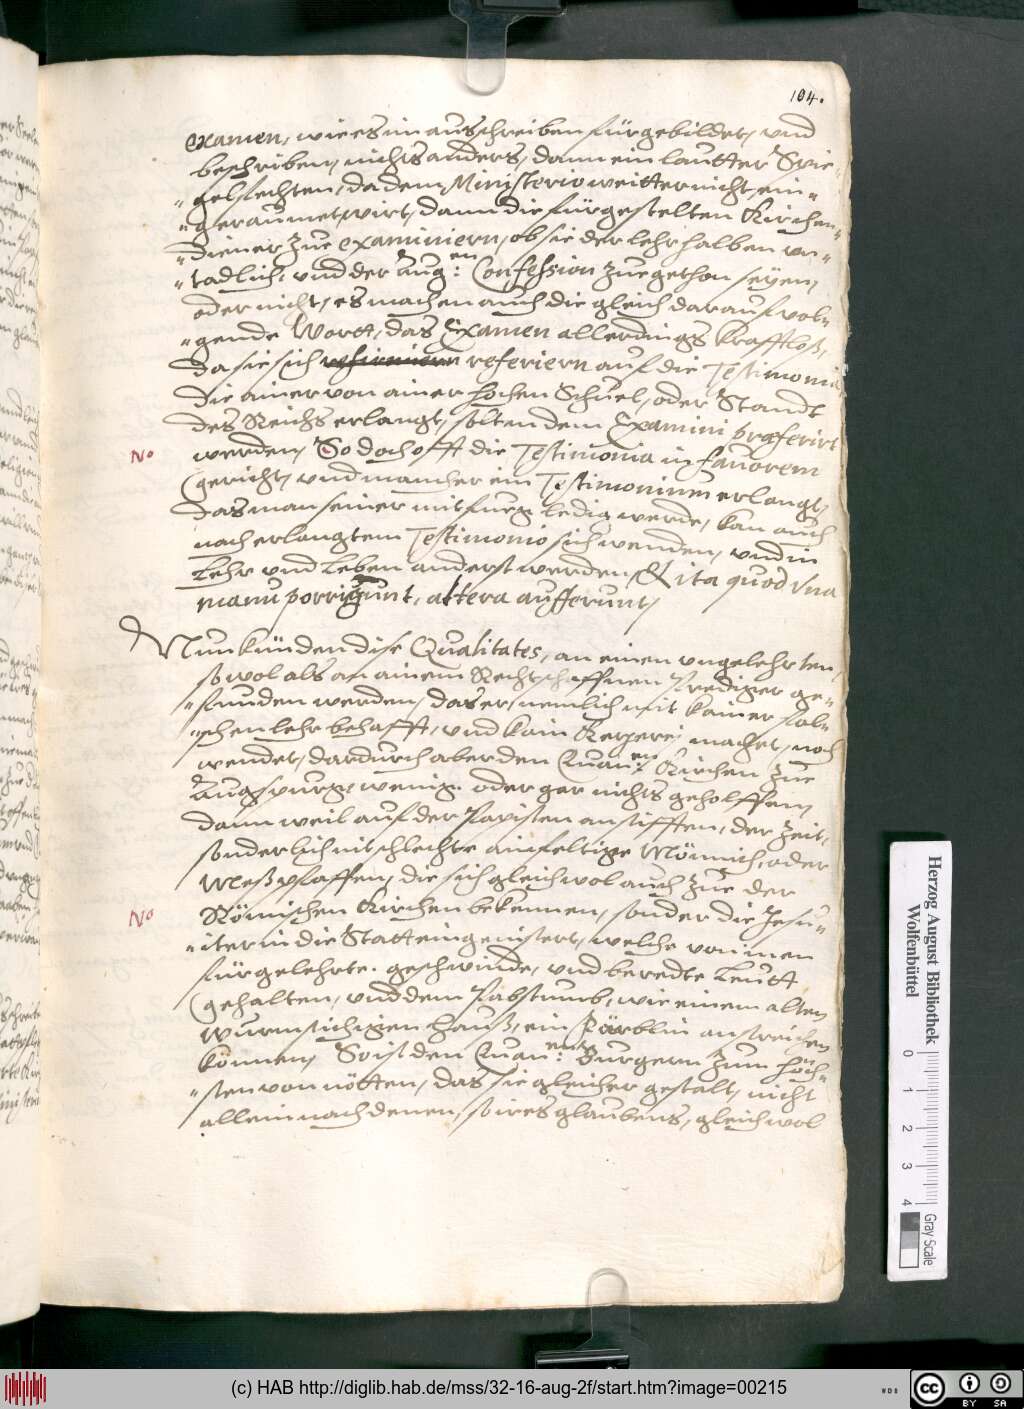 104.
examen, wie es im ausschreiben fürgebildet, und
beschriben, nichts anders, dann ein lautter Spie„
„gelfechten, da dem Ministerio weitter nicht, ein„
„geraumet wirt, dann die fürgestelten Kirchen„
„diener zue examiniern, ob sie der lehr halben vn„
„tadlich, und der Aug:en Confession zuegethon seyen,
oder nicht, es machen auch die gleich darauf vol„
„gende Wort, das Examen allerdings krafftloß,
da sie sich referiern auf die Testimonia
die ainer von ainer hochen Schuel, oder Standt
des Reichs erlangt, solten dem Examini præferirt
No
werden, So doch offt die Testimonia in fauorem
gericht, und mancher ein Testimonium erlangt,
das man seiner mit fueg ledig werde, kan auch
nach erlangtem Testimonio sich wenden, und in
Lehr und Leben anderst werden, Et ita quod vna
manu porrigunt, altera aufferunt,
Nun künden dise Qualitates, an einen ungelehrten,
so wol als an ainem Rechtschaffnen Prediger ge„
„funden werden, das er nemlich mit kainer fal„
„schen lehr behafft, und kain Kezerej machet, noch
wendet, dardurch aber den Euan:en Kirchen zue
Augspurg, wenig oder gar nichts geholffen,
dann weil auf der Papisten anstifften, der Zeit,
sonderlich nit schlechte ainfeltige Mönnich, oder
Meßpfaffen, die sich gleichwol auch zue der
No
Römischen Kirchen bekennen, sonder die Jesu„
„iter in die Statt eingenistert, welche von inen
für gelehrte, geschwinde, und beredte Leutt
gehalten, und dem Pabstumb, wie einem alten
wurmstichigen Hauß, ein Färblin anstreichen
können, So ist den Euan:en Burgern zum höch„
„sten von nötten, das sie gleicher gestalt, nicht
allein nach denen, so ires glaubens, gleichwol
Herzog August Bibliothek
Wolfenbüttel
0 1 2 3 4
Gray Scale
(c) HAB http://diglib.hab.de/mss/32-16-aug-2f/start.htm?image=00215
WDB
cc BY SA